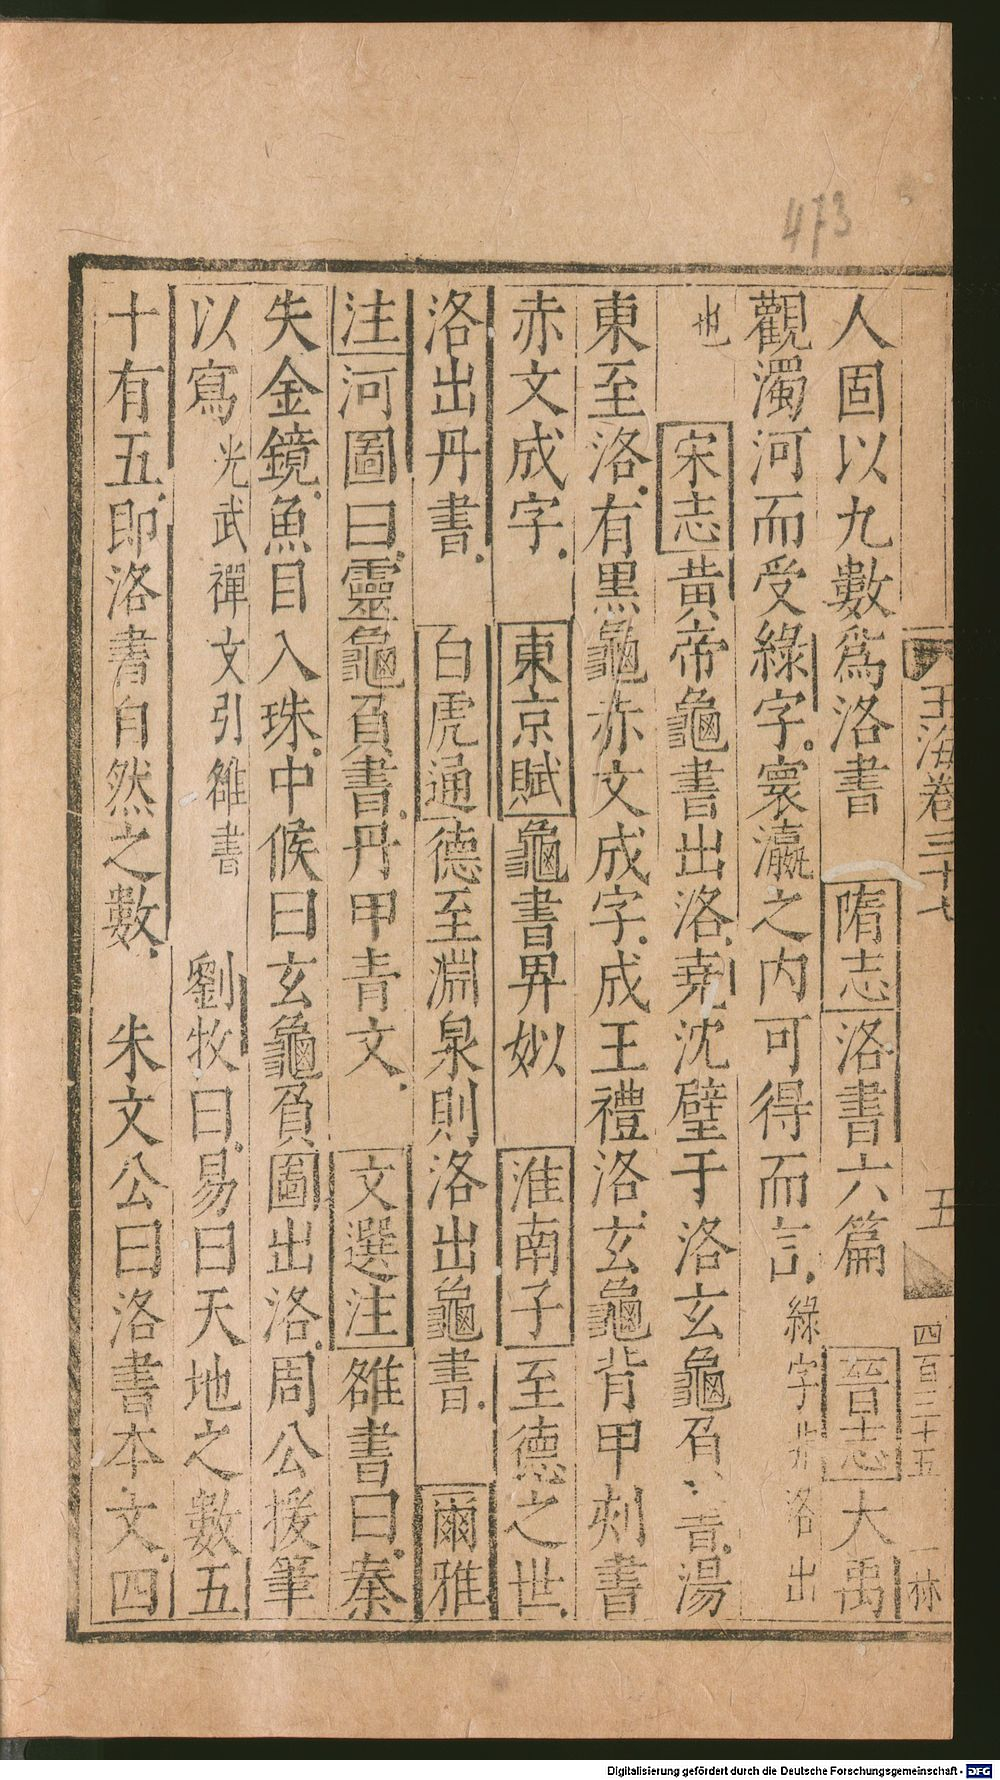 473
玉海卷三十七
五
四百三十五
林
人固以九數爲洛書 隋志洛書六篇 晉志大禹
觀濁河而受綠字。寰瀛之内可得而言。綠字非洛出
也 宋志黄帝龜書出洛。堯沈璧于洛玄龜負書。湯
東至洛。有黑龜赤文成字。成王禮洛。玄龜背甲刻書
赤文成字。 東京賦龜書畀姒 淮南子至德之世。
洛出丹書。 白虎通德至淵泉則洛出龜書。 爾雅
注河圖曰。靈龜負書。丹甲青文。 文選注雒書曰。秦
失金鏡。魚目入珠。中候曰玄龜負圖出洛。周公援筆
以寫光武禪文引雒書 劉牧曰。易曰天地之數五
十有五。即洛書自然之數。 朱文公曰洛書本文。四
Digitalisierung gefördert durch die Deutsche Forschungsgemeinschaft - DFG